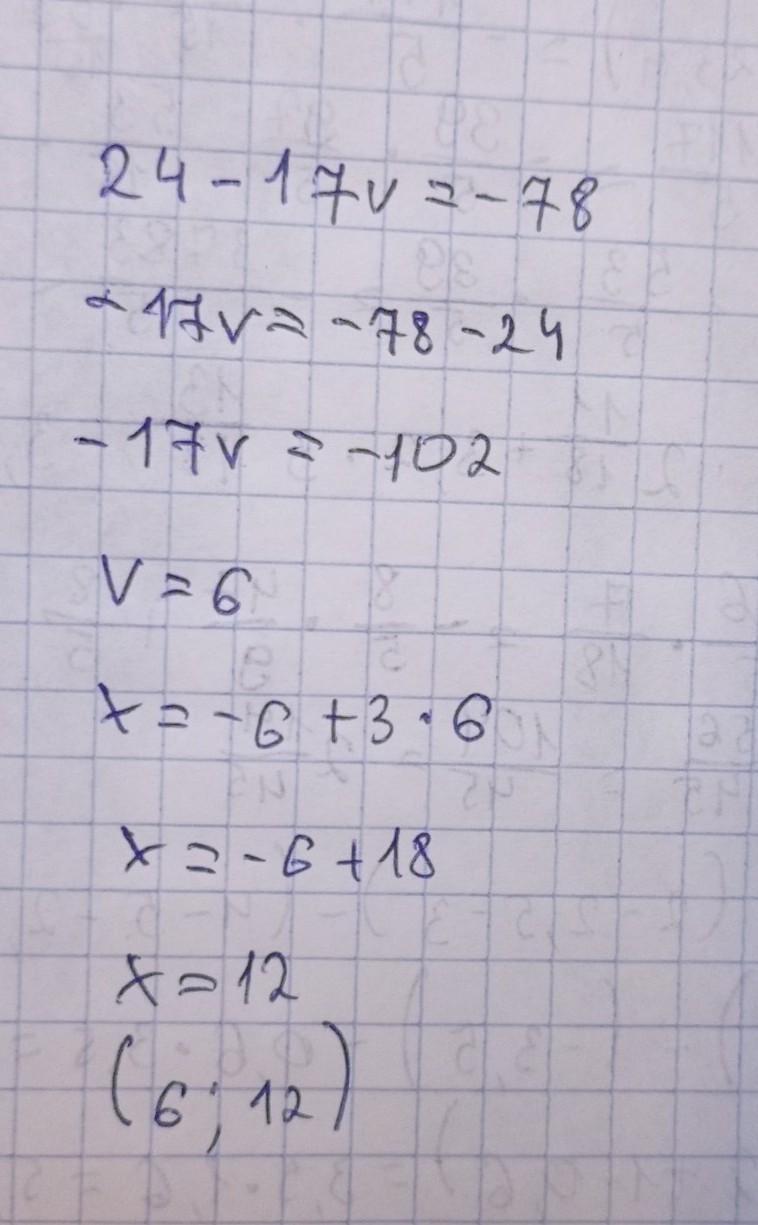 24 - 17v = -78
-17v = -78 - 24
-17v = -102
v = 6
x = -6 + 3 · 6
x = -6 + 18
x = 12
(6; 12)